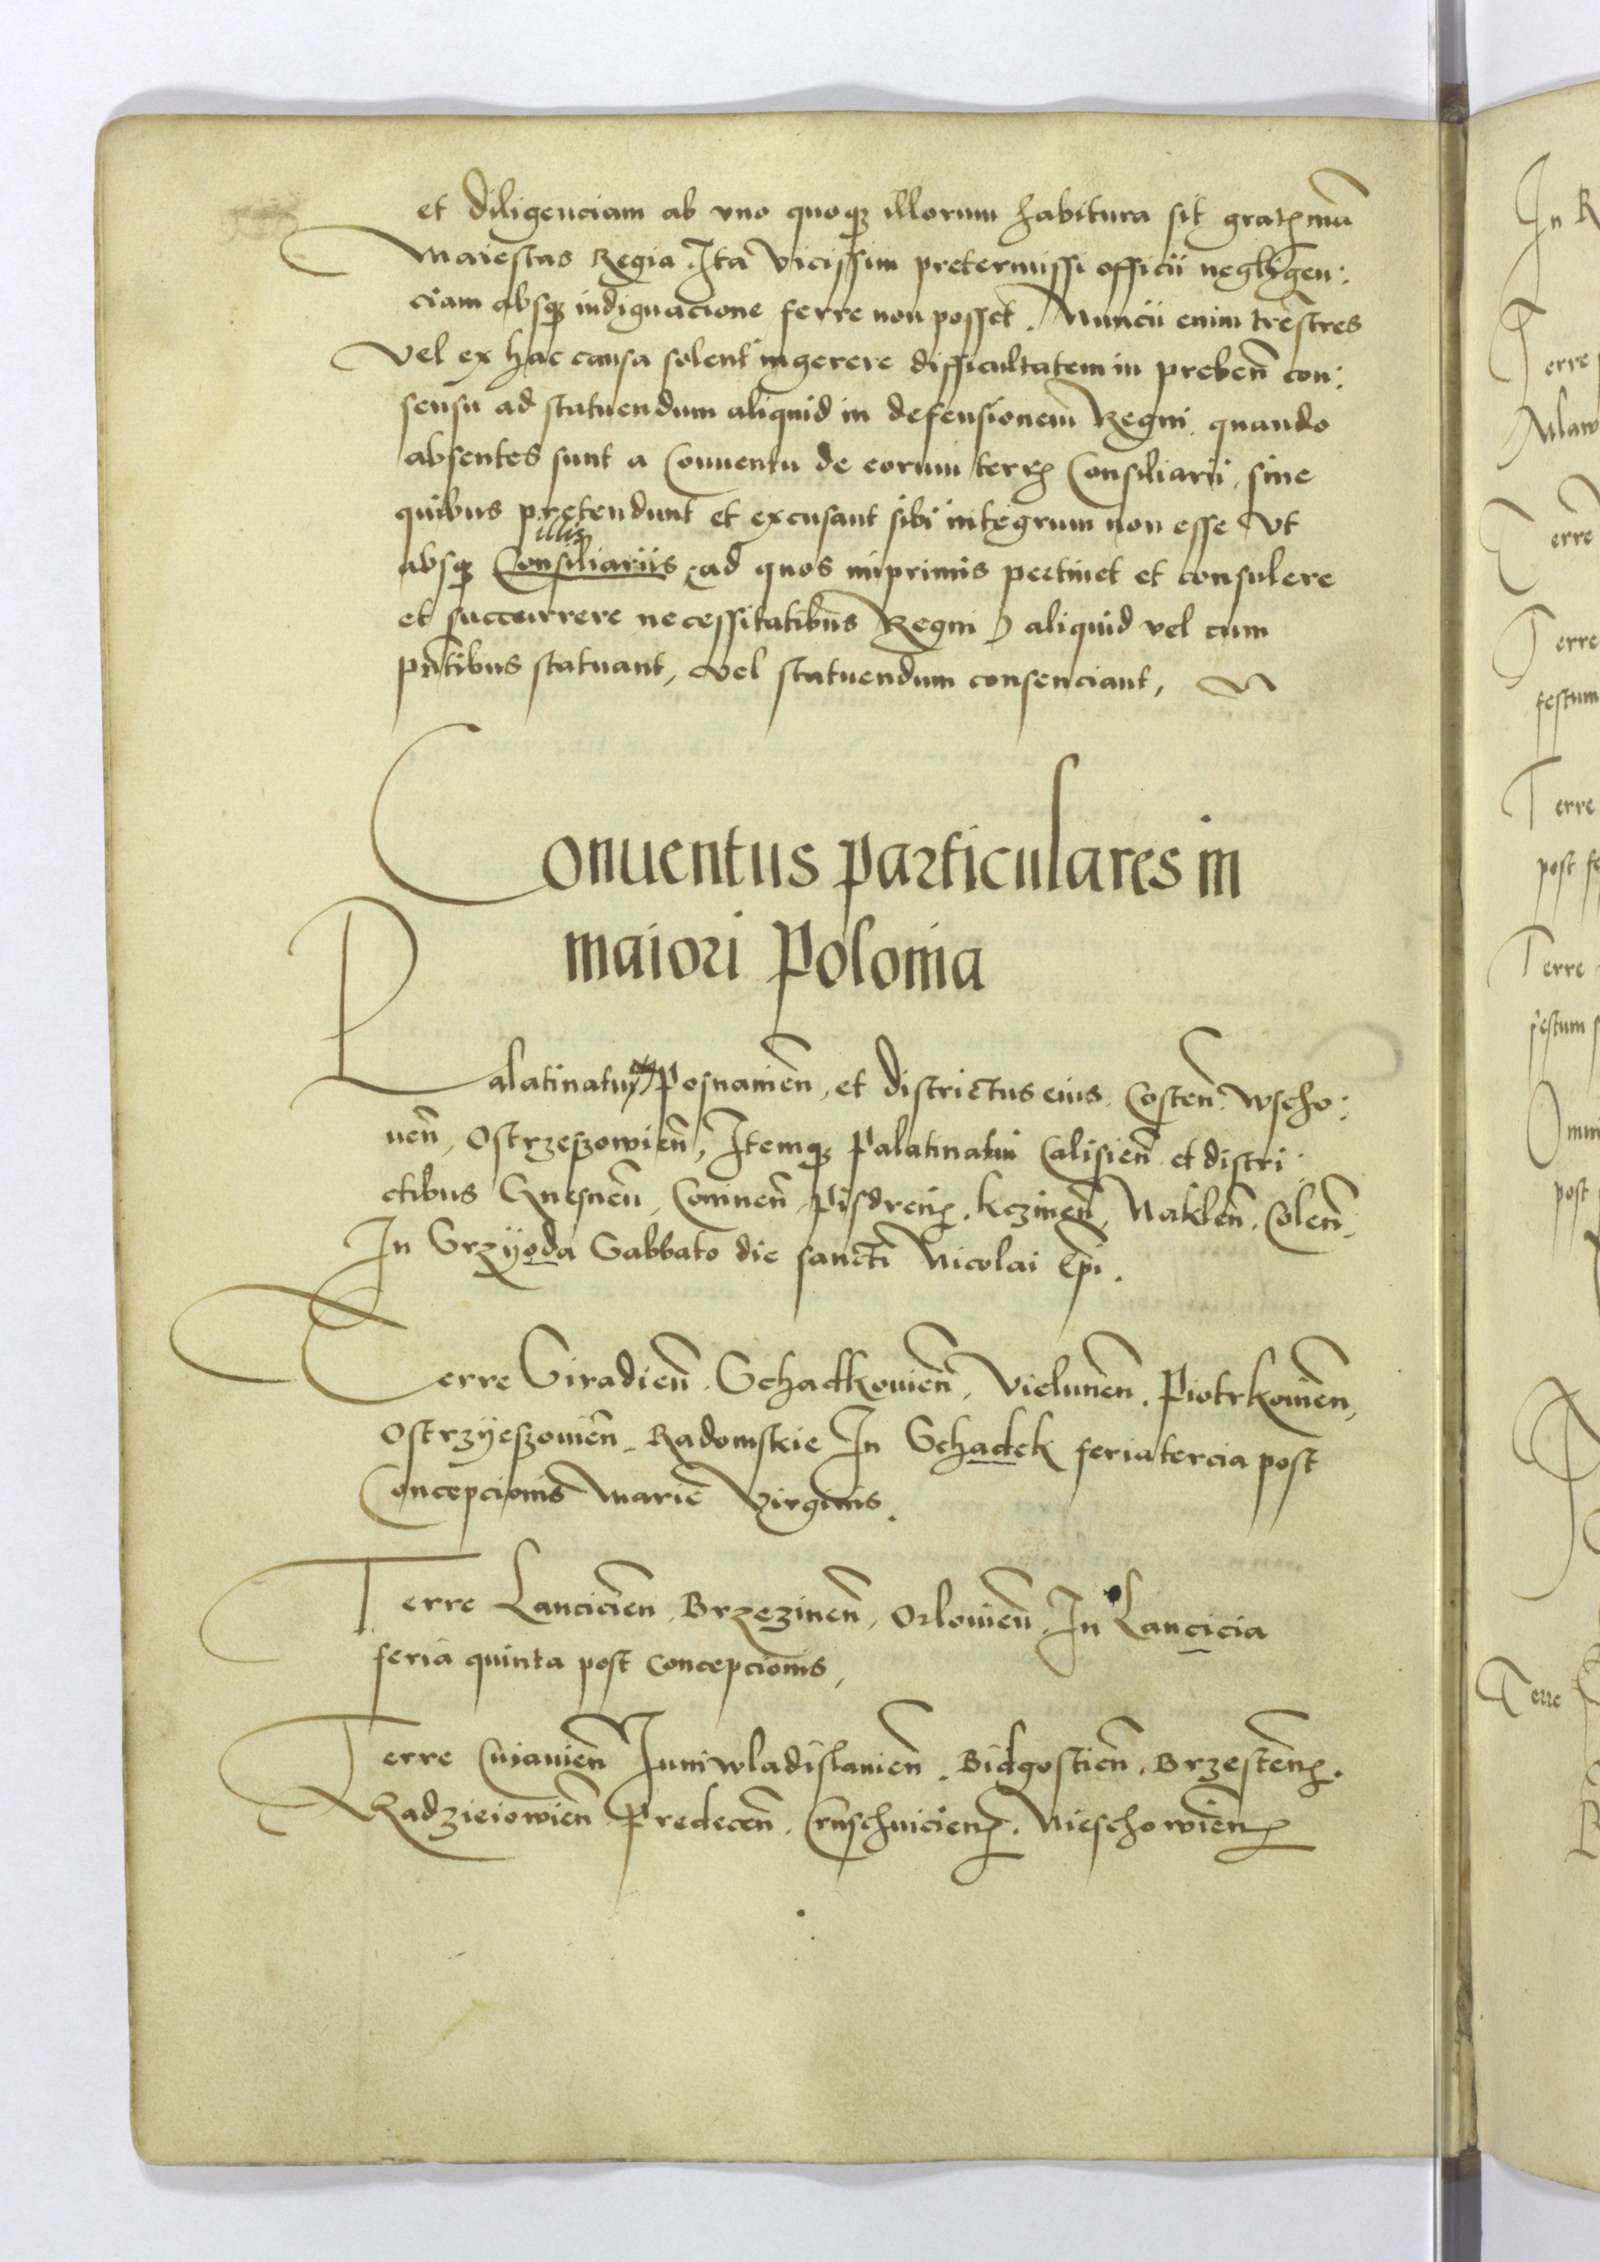 et diligenciam ab vno quoqꝫ illorum habitura sit
Maiestas Regia Ita vicissim pretermissi officii negligen:
ciam absqꝫ indignacione ferre non posset. Nuncii enim trēstres
Vel ex hac causa solent ingerere difficultatem in prebeñ con:
sensu ad statuendum aliquid in defensionem Regni quando
absentes sunt a Conuentu de eorum terrꝭ Consiliarii, sine
quibus pretendunt et excusant sibi integrum non esse Vt
illis
absqꝫ Consiliariis (ad quos inprimis pertinet et consulere
et succurrere necessitatibus Regni) aliquid vel cum
pñtibus statuant, Vel statuendum consenciant,
Conuentus particulares in
maiori Polonia
Palatinatus Posnanieñ, et districtus eius Costeñ. Wscho:
ueñ, Ostrzeszowieñ, Itemqꝫ Palatinatui Calisieñ et distri
ctibus Gnesneñ, Conineñ, Pisdreñ, Kczineñ, Nakleñ, Coleñ,
In Srzyoda Sabbato die sancti Nicolai Epi.
Terre Siradieñ. Schadkouieñ, Vieluneñ. Piotrkouieñ,
Ostrzyeszouieñ, Radomskie In Schadek feria tercia post
Concepcionis Marie Virginis.
Terre Lancicieñ, Brzezineñ, Orlouieñ. In Lancicia
feria quinta post Concepcionis,
Terre Cuiauieñ Iuniwladislauieñ. Bidgostieñ. Brzesteñ.
Radzieiowieñ Predeceñ. Cruschuicieñ. Nieschowieñ
In R
Terre
Terre
Terre
festum
Terre
post fe
Terre
festum
post
Terre